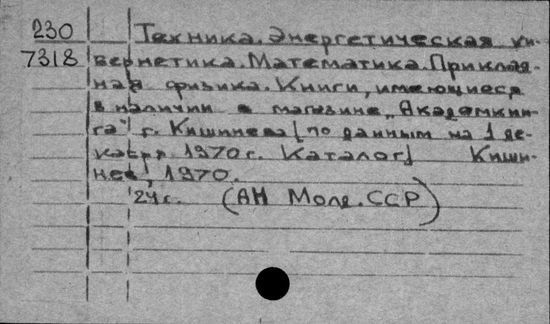 230 Техника. Энергетическая ки-
7318 бернетика. Математика. Приклад-
ная физика. Книги, имеющиеся
в наличии в магазине „Академкни-
га" г. Кишинева [по данным на 1 де-
кабря 1970 г. Каталог] Киши-
нев, 1970.
24 с. (АН Молд. ССР)